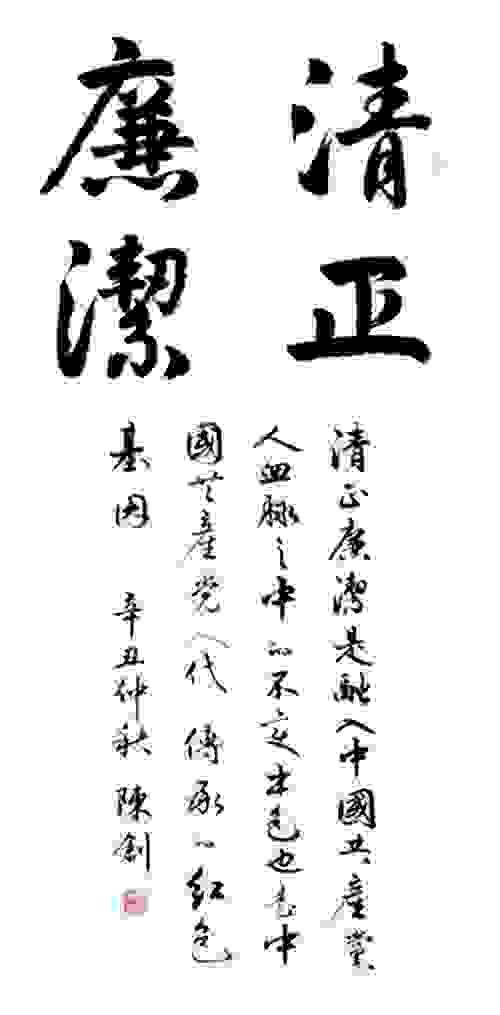 清正
廉潔
清正廉潔是融入中國共產黨
人血脉之中的不变本色也是中
國共產党人代傳承的红色
基因 辛丑仲秋 陳創